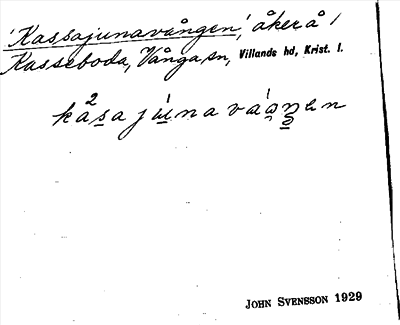 'Kassajunavången', åker å 1
Kasseboda, Vånga sn, Villands hd, Krist. l.
JOHN SVENSSON 1929